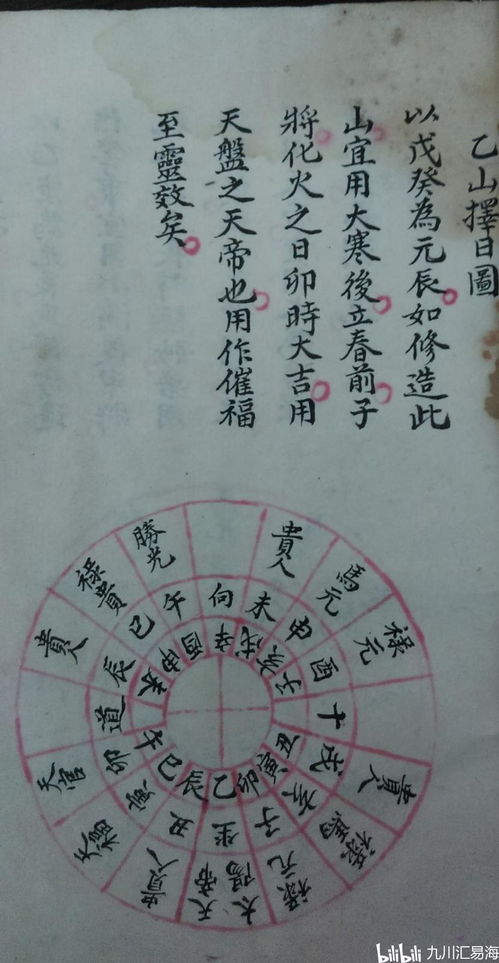 乙山擇日圖
以戊癸為元辰如修造此
山宜用大寒後立春前子
將化火之日卯時大吉用
天盤之天帝也用作催福
至靈效矣
貴人
馬元
祿元
貴人
祿馬
祿元
太陽
天帝
貴人
天官
貴人
祿貴
勝光
向
未
申
酉
十
戌
亥
子
坐
丑
寅
卯
道
辰
巳
午
辛
戌
亥
子
丑
寅
卯
乙
辰
巳
午
未
申
酉
bilibili 九川汇易海